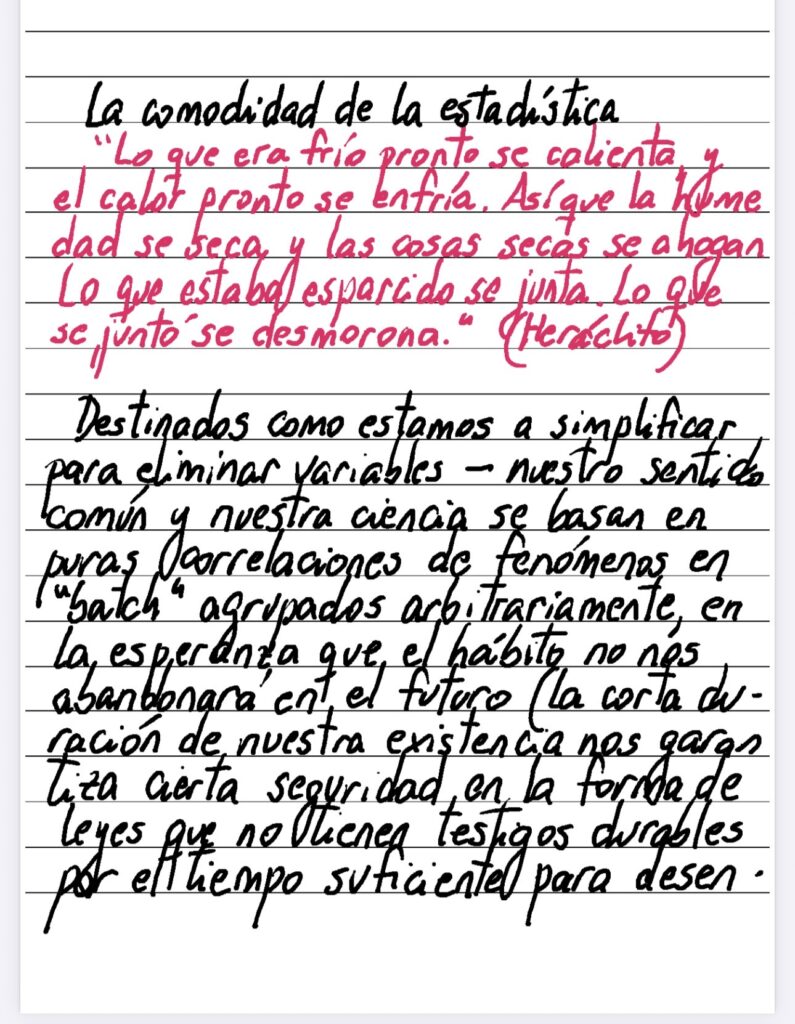 La comodidad de la estadística
"Lo que era frío pronto se calienta, y
el calor pronto se enfría. Así que la hume
dad se seca, y las cosas secas se ahogan
Lo que estaba esparcido se junta. Lo que
se juntó se desmorona." (Heráclito)
Destinados como estamos a simplificar
para eliminar variables – nuestro sentido
común y nuestra ciencia se basan en
puras correlaciones de fenómenos en
"batch" agrupados arbitrariamente, en
la esperanza que el hábito no nos
abandonará en el futuro (la corta du-
ración de nuestra existencia nos garan
tiza cierta seguridad en la forma de
leyes que no tienen testigos durables
por el tiempo suficiente para desen-